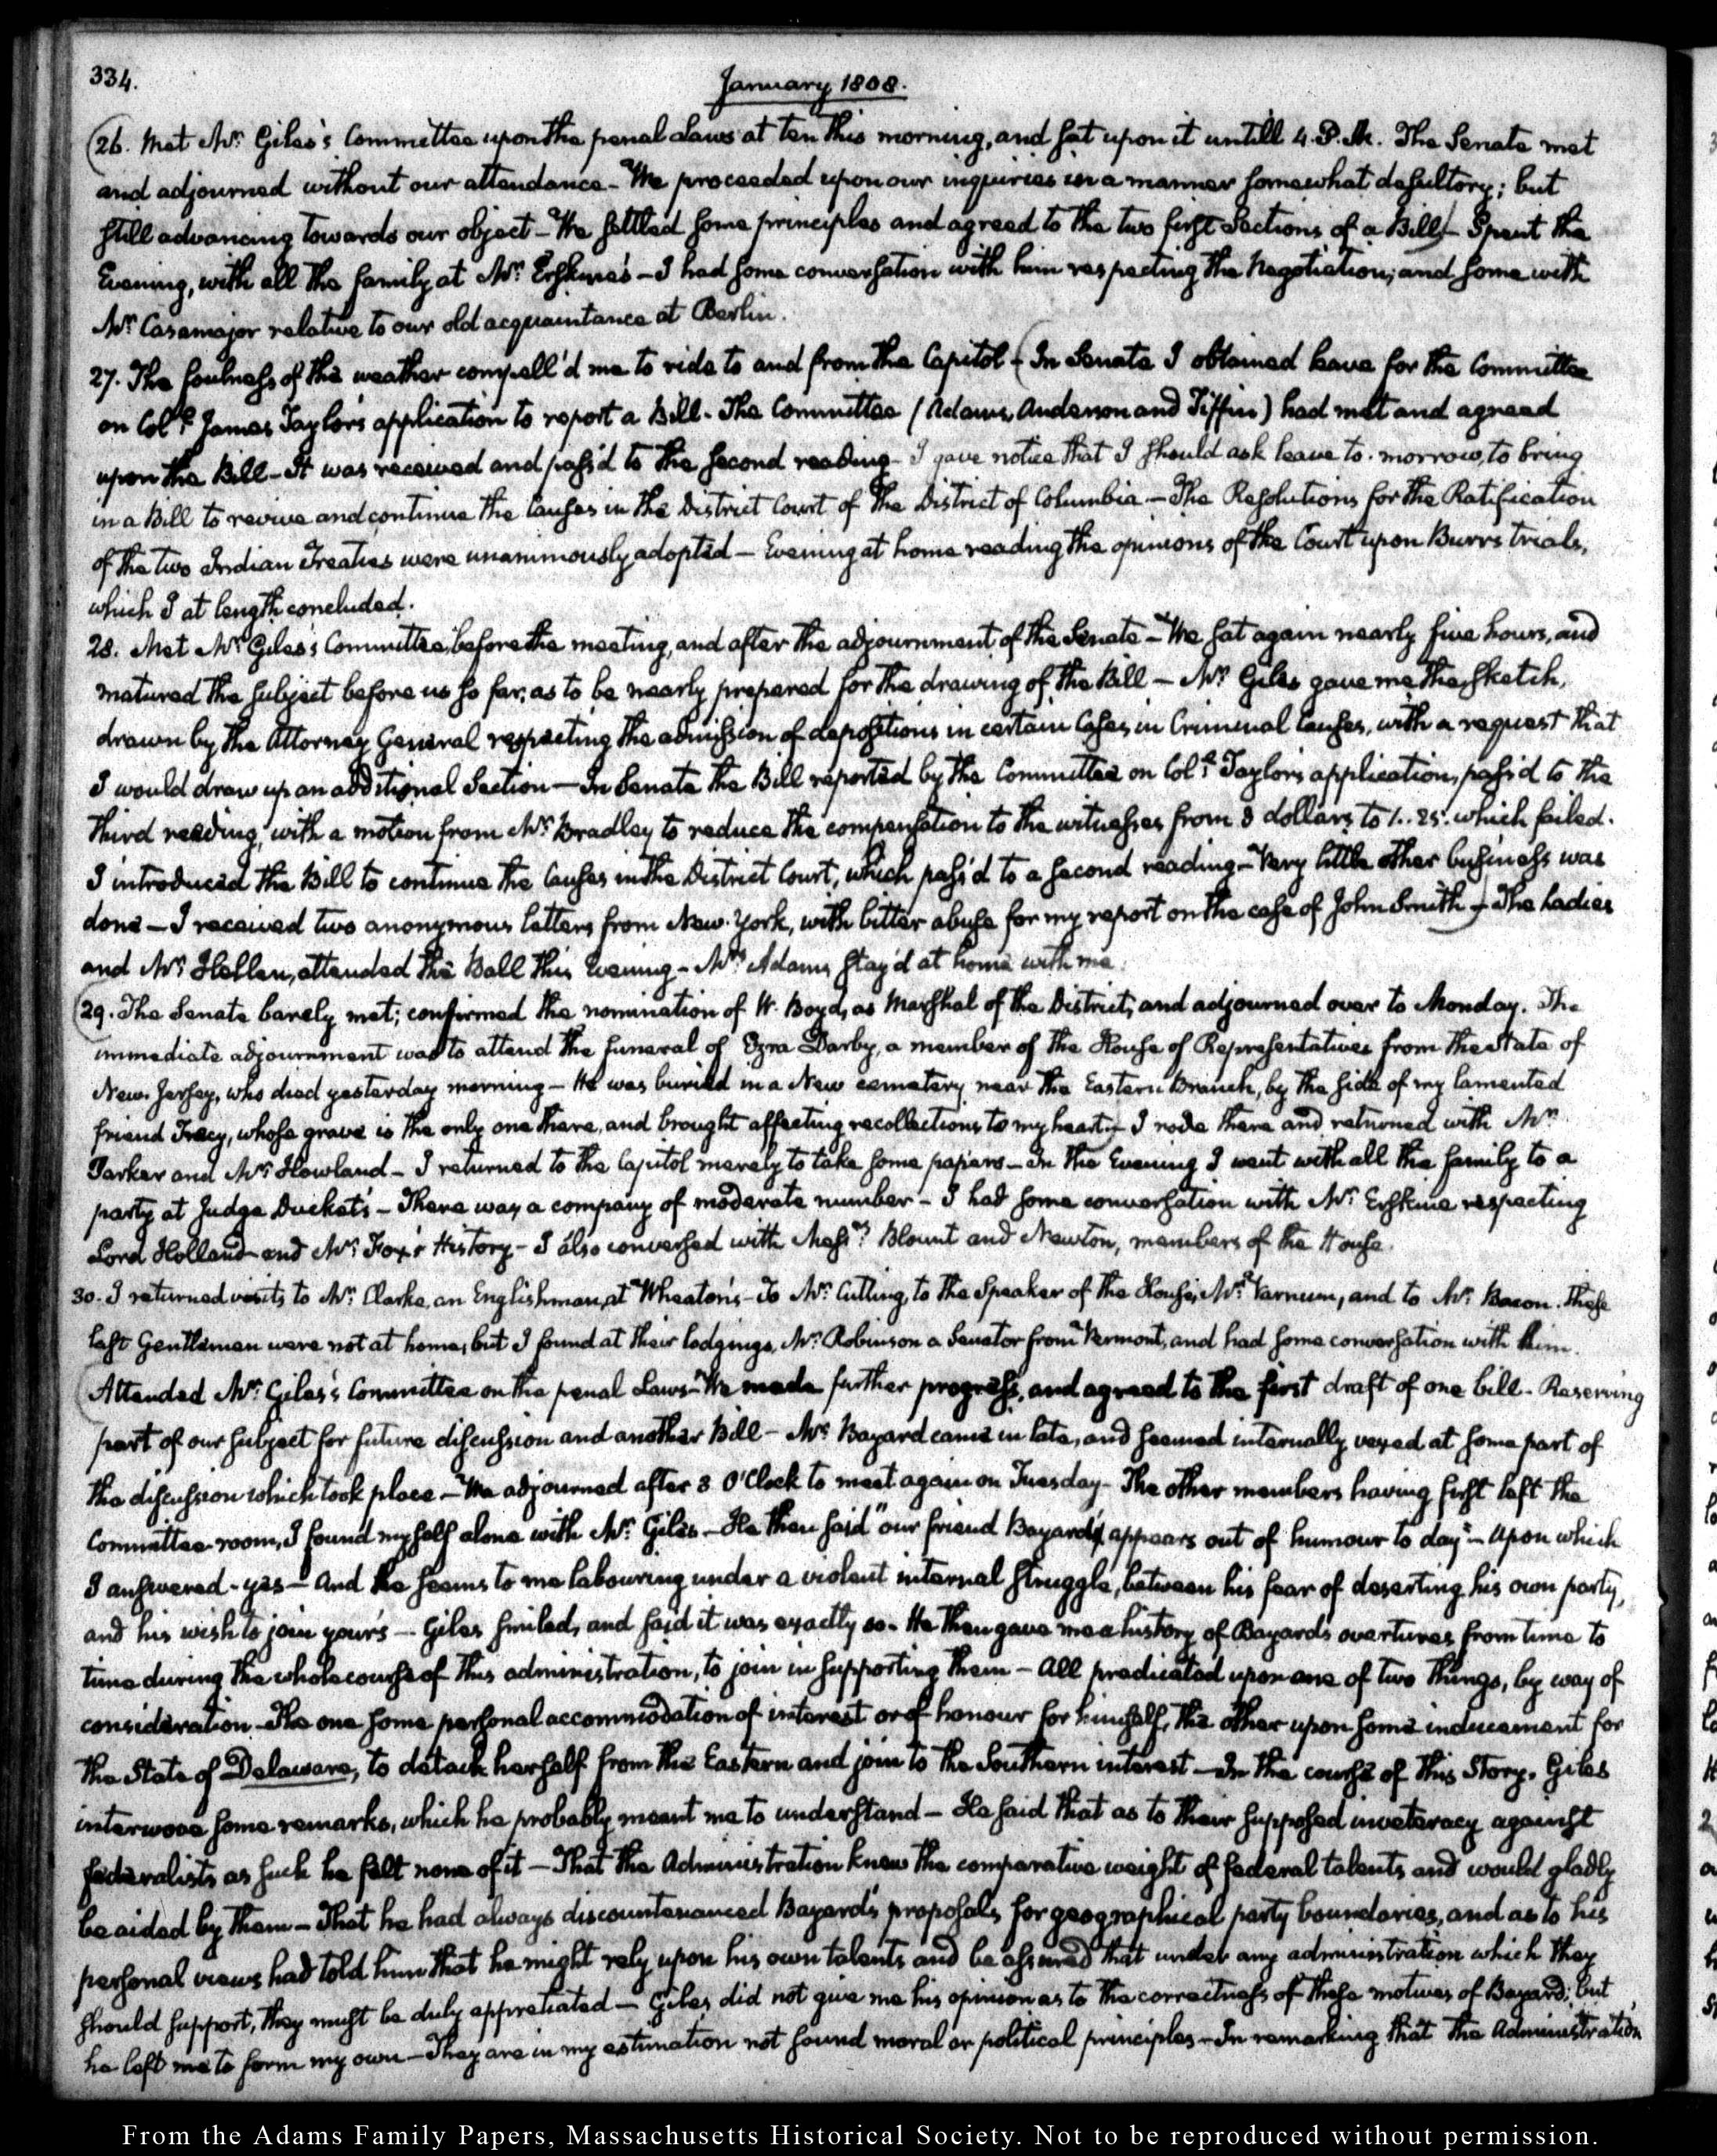 334.
January 1808.
26. Met Mr. Giles's Committee upon the penal Laws at ten this morning, and sat upon it untill 4. P.M. The Senate met
and adjourned without our attendance - We proceeded upon our inquiries in a manner somewhat desultory; but
still advancing towards our object - We settled some principles and agreed to the two first Sections of a Bill - Spent the
Evening, with all the family at Mr. Erskine's - I had some conversation with him respecting the Negotiation; and some with
Mr. Casamajor relative to our old acquaintance at Berlin.
27. The foulness of the weather compell'd me to ride to and from the Capitol - (In Senate I obtained leave for the Committee
on Coll. James Taylor's application to report a Bill - The Committee (Adams, Anderson and Tiffin) had met and agreed
upon the Bill - It was received and pass'd to the second reading - I gave notice that I should ask leave to-morrow, to bring
in a Bill to revive and continue the Causes in the District Court of the District of Columbia - The Resolutions for the Ratification
of the two Indian Treaties were unanimously adopted - Evening at home reading the opinions of the Court upon Burrs trials,
which I at length concluded.
28. Met Mr. Giles's Committee, before the meeting, and after the adjournment of the Senate - We sat again nearly five hours, and
matured the subject before us so far, as to be nearly prepared for the drawing of the Bill - Mr. Giles gave me the sketch,
drawn by the Attorney General respecting the admission of depositions in certain Cases in Criminal Causes, with a request that
I would draw up an additional Section - In Senate the Bill reported by the Committee on Coll. Taylor's application, pass'd to the
third reading, with a motion from Mr. Bradley to reduce the compensation to the witnesses from 3 dollars to 1..25. which failed.
I introduced the Bill to continue the Causes in the District Court, which pass'd to a second reading - Very little other business was
done - I received two anonymous letters from New-York, with bitter abuse for my report on the case of John Smith) - The Ladies
and Mr. Hellen, attended the Ball this Evening - Mrs. Adams stay'd at home with me.
(29. The Senate barely met; confirmed the nomination of W. Boyd, as Marshal of the District; and adjourned over to Monday. The
immediate adjournment was to attend the funeral of Ezra Darby, a member of the House of Representatives from the State of
New-Jersey, who died yesterday morning - He was buried in a New cemetery near the Eastern Branch, by the side of my lamented
friend Tracy, whose grave is the only one there, and brought affecting recollections to my heart) - I rode there and returned with Mr.
Parker and Mr. Howland - I returned to the Capitol merely to take some papers - In the Evening I went with all the family to a
party at Judge Ducket's - There was a company of moderate number - I had some conversation with Mr. Erskine respecting
Lord Holland and Mr. Fox's History - I also conversed with Messrs. Blount and Newton, members of the House.
30. I returned visits to Mr. Clarke, an Englishman, at Wheaton's - To Mr. Cutting, to the Speaker of the House, Mr. Varnum, and to Mr. Bacon. These
last Gentlemen were not at home, but I found at their lodgings, Mr. Robinson a Senator from Vermont, and had some conversation with him.
(Attended Mr. Giles's Committee on the penal Laws - We made further progress, and agreed to the first draft of one bill - Reserving
part of our subject for future discussion and another Bill - Mr. Bayard came in late, and seemed internally vexed at some part of
the discussion which took place - We adjourned after 3 O'Clock to meet again on Tuesday - The other members having first left the
Committee-room, I found myself alone with Mr. Giles - He then said "our friend Bayard appears out of humour to day" - Upon which
I answered - yes - And he seems to me labouring under a violent internal struggle, between his fear of deserting his own party,
and his wish to join your's - Giles smiled, and said it was exactly so - He then gave me a history of Bayard's overtures from time to
time during the whole course of this administration, to join in supporting them - All predicated upon one of two things, by way of
consideration - The one some personal accommodation of interest or of honour for himself, the other upon some inducement for
the State of Delaware, to detach herself from the Eastern and join to the Southern interest - In the course of this Story, Giles
interwove some remarks, which he probably meant me to understand - He said that as to their supposed inveteracy against
federalists as such he felt none of it - That the Administration knew the comparative weight of federal talents and would gladly
be aided by them - That he had always discountenanced Bayard's proposals for geographical party boundaries, and as to his
personal views had told him that he might rely upon his own talents and be assured that under any administration which they
should support, they must be duly appretiated - Giles did not give me his opinion as to the correctness of these motives of Bayard; but
he left me to form my own - They are in my estimation not sound moral or political principles - In remarking that the Administration
From the Adams Family Papers, Massachusetts Historical Society. Not to be reproduced without permission.